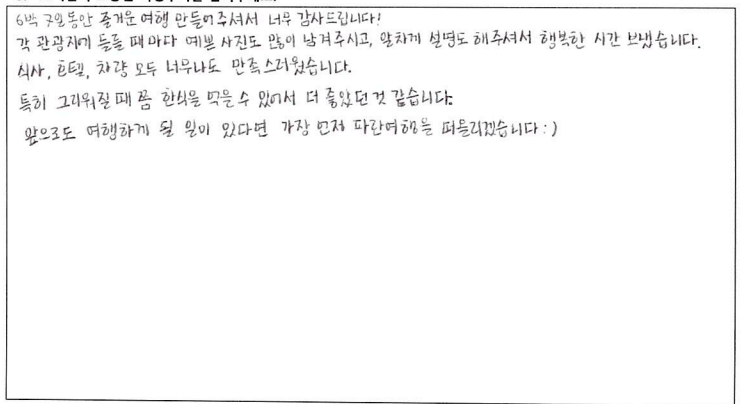 6박 7일동안 즐거운 여행 만들어주셔서 너무 감사드립니다!
각 관광지에 들를 때마다 예쁜 사진도 많이 남겨주시고, 알차게 설명도 해주셔서 행복한 시간 보냈습니다.
식사, 호텔, 차량 모두 너무나도 만족스러웠습니다.
특히 그리워질 때 쯤 한식을 먹을 수 있어서 더 좋았던 것 같습니다.
앞으로도 여행하게 될 일이 있다면 가장 먼저 파란여행을 떠올리겠습니다 : )